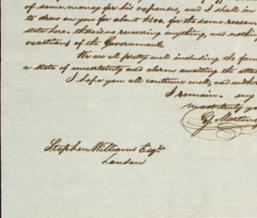 of some money for his expenses, and I shall in
to draw on you for about $200. for the same reason
state here. there is no receiving anything, and nothing
exactions of the Government.
We are all pretty well including the fam
a state of uncertainty and alarm awaiting the att
I hope you all continue well, and
I remain my
most truly you
Stephen Williams Esqr.
Laredo